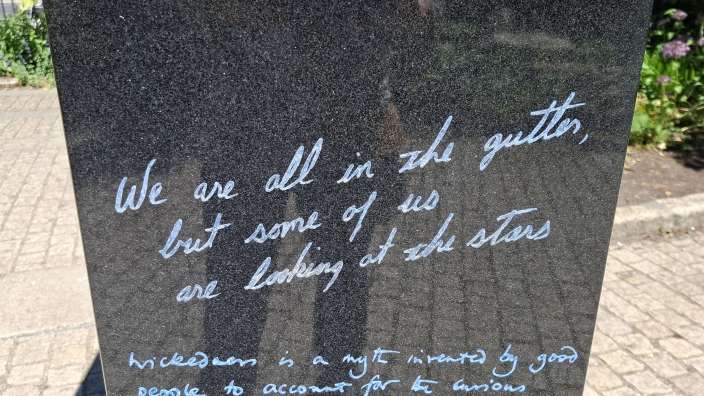 We are all in the gutter,
but some of us
are looking at the stars
Wickedness is a myth invented by good
people to account for the curious